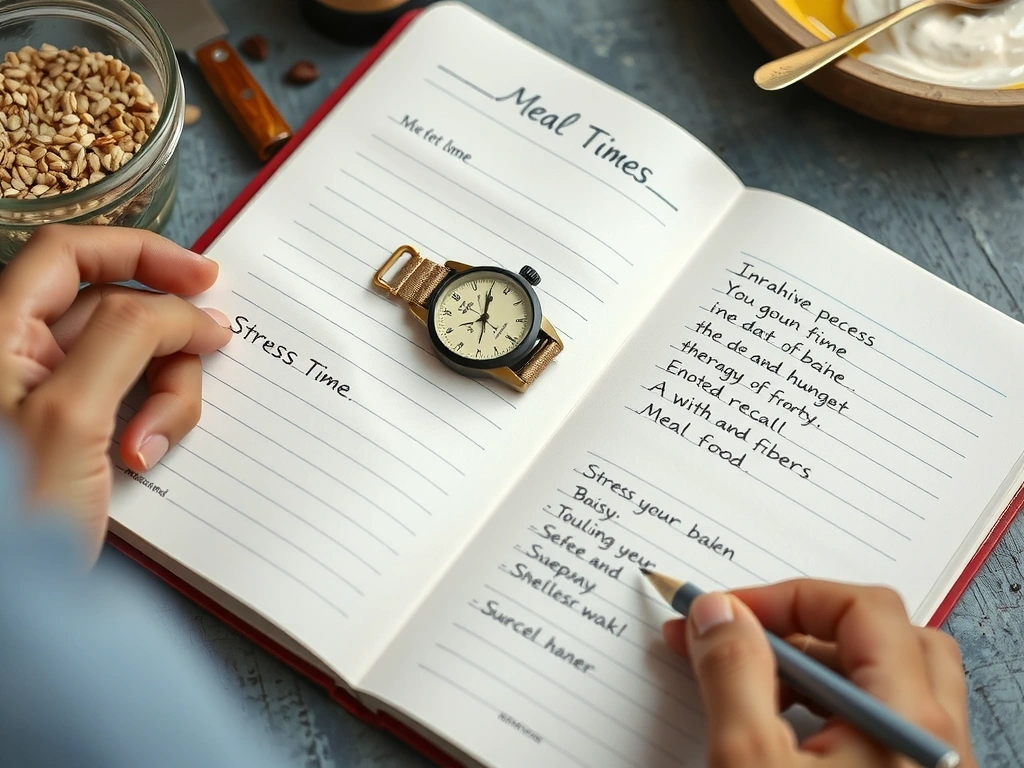 Meal Times
Stress Time.
Inrahive pecess
You goun fime
ine dat of bahe.
the de and hunget
theragy of frorty.
Enoted recall
A with and fibers
Meal food
Stress your balen
- Baisy.
- Touling yeur
- Sefee and
- Saepmy
- Shellest wak!
- Surcel haner